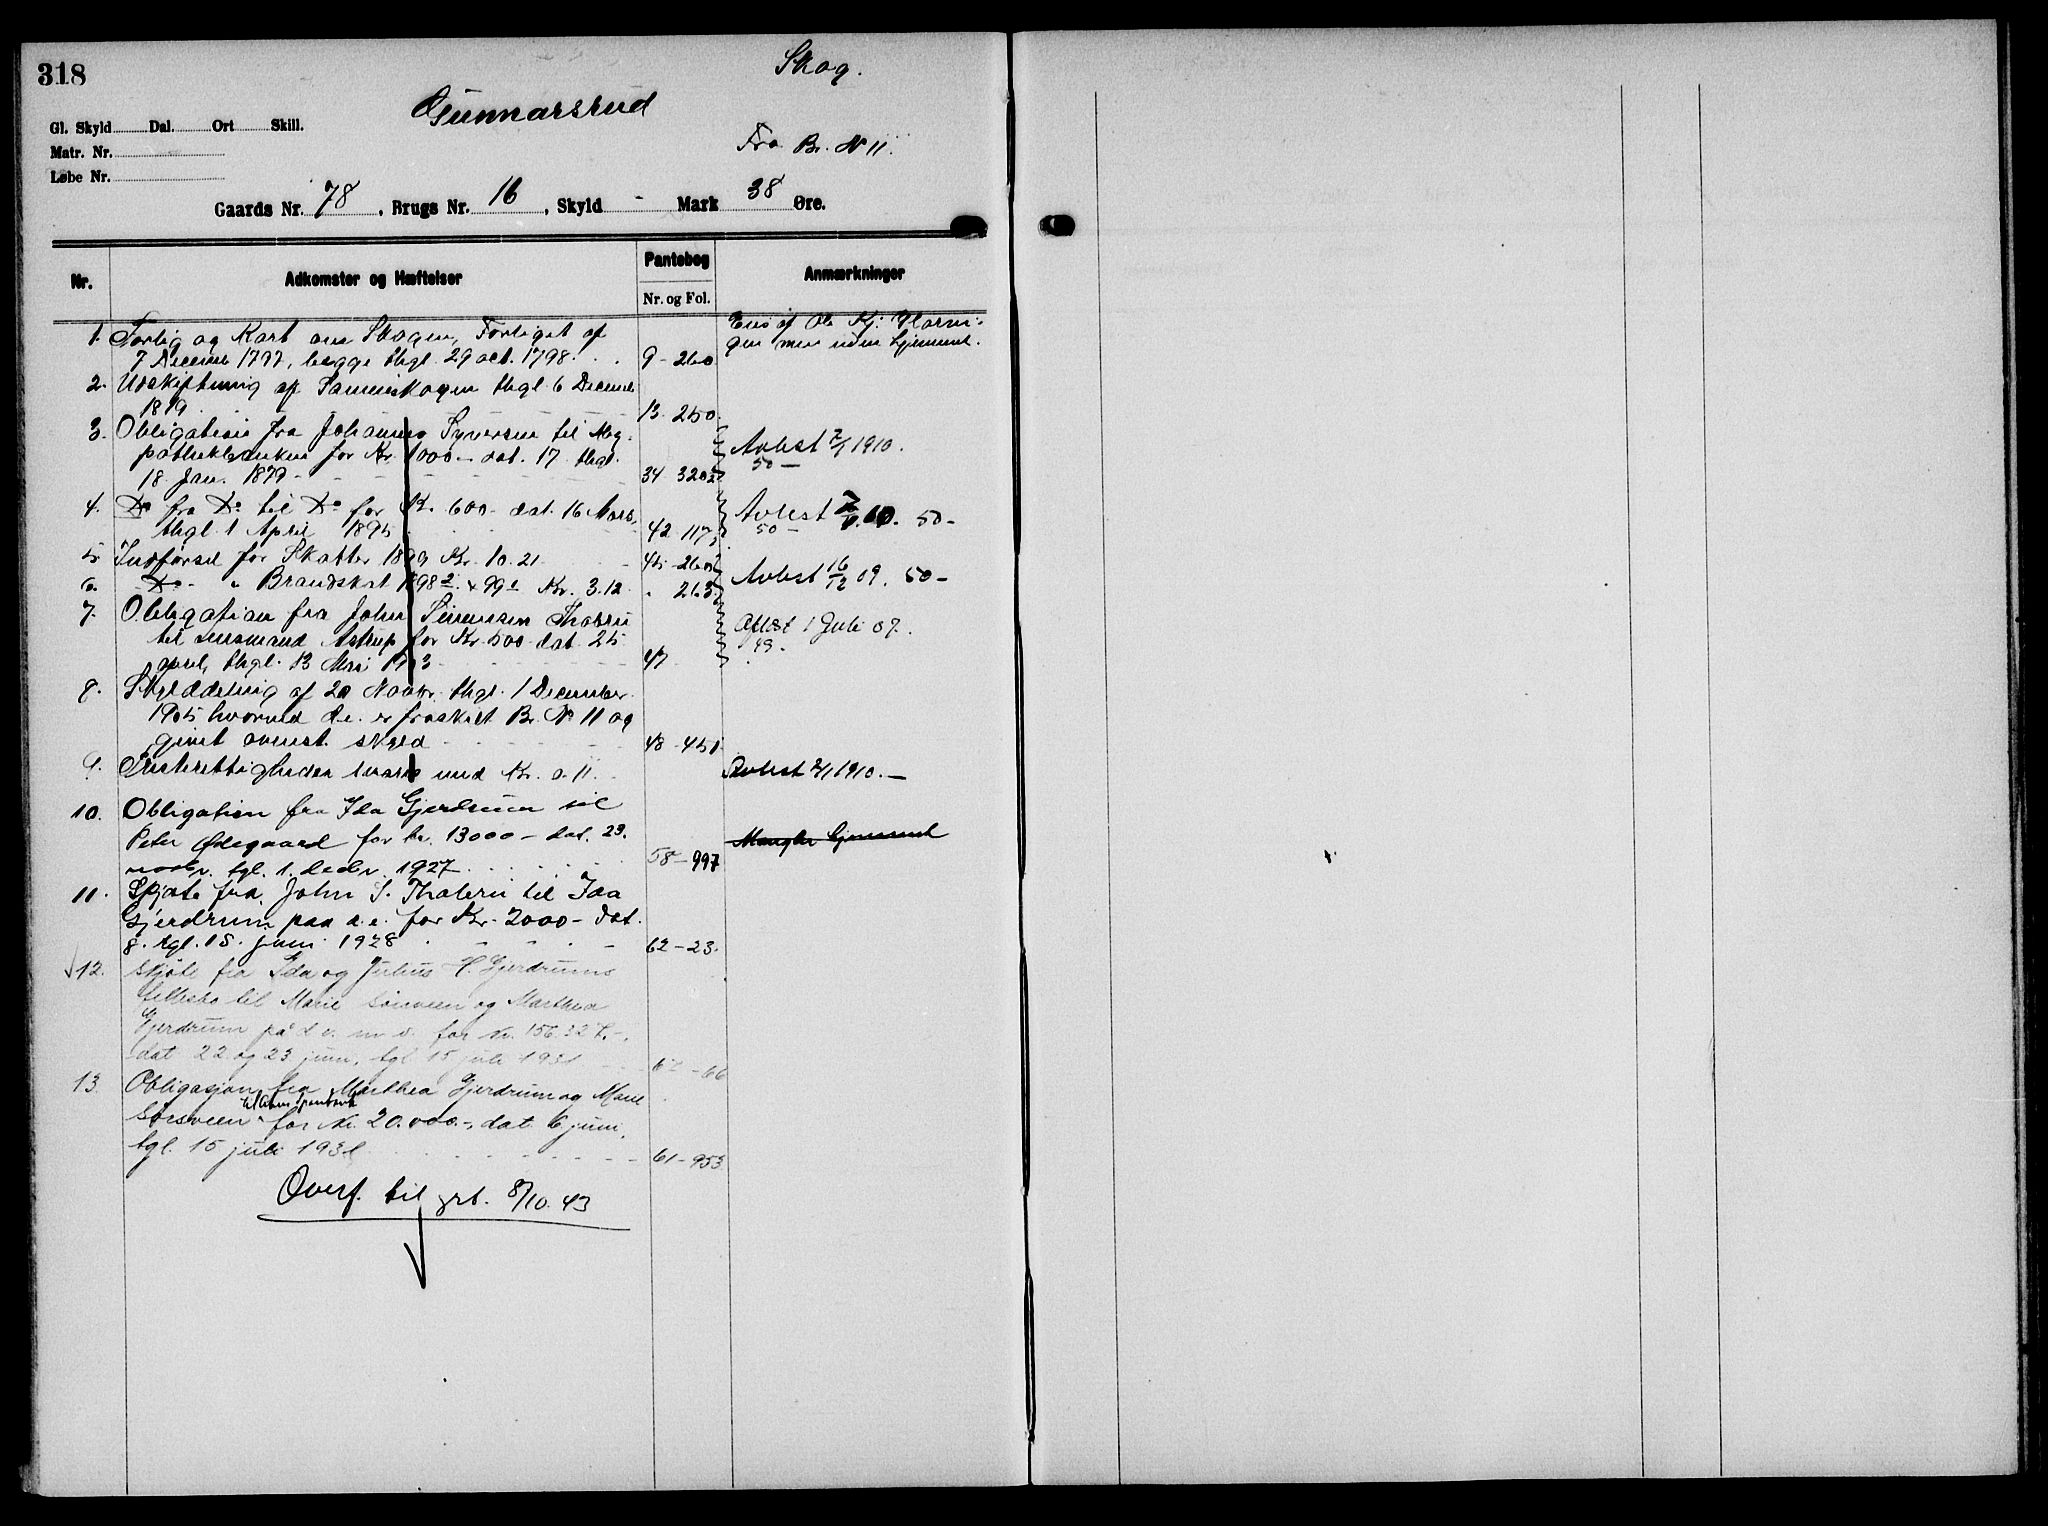 318
Skog.
Gunnarsrud
Gl. Skyld Dal. Ort Skill.
Matr. Nr.
Løbe Nr.
Fra Br. N 11.
Gaards Nr. 78, Brugs Nr. 16, Skyld - Mark 38 Øre.
Nr. Adkomster og Hæftelser Pantebog Nr. og Fol. Anmærkninger
1. Forlig og Kart om Skogen, Forliget af
7 December 1797, begge thgl. 29 oct. 1798. 9 - 260
Eies af Ole Kj:
men uden Hjemmel.
2. Udskiftning af Sameskogen thgl. 6 Decemb.
1819 13 250.
3. Obligation fra Johannes Syversen til Hy-
pothekbanken for Kr. 1000 - dat. 17 thgl.
18 Jan. 1879 - 34 320
Avlest 7/1 1910.
50 -
4. Do fra Do til Do for Kr. 600 - dat. 16 Mars,
thgl. 1 April 1895 42 117
Avlest 50 -
50 -
5 Indførsel for Skatter 1899 Kr. 10.21 45 - 260
6. Do - " Brandskat 1898 2. & 99 1 Kr. 3.12 " 263
Avlest 16/12 09. 50 -
7. Obligation fra John Simensen Thorru
til Lensmand Astrup for Kr. 500 dat. 25
april, thgl. 13 Mai 1903 47
Aflæst 1 Juli 07.
49.
8. Skylddeling af 20 Novbr. thgl. 1 December
1905 hvorved d.e. er fraskilt Br. No 11 og
givet ovenst. skyld 48 - 451
9. med Kr. 0.11. Avlest 7/1 1910. -
10. Obligation fra Ida Gjerdrum til
Peter Ødegaard for kr. 13000 - dat. 23.
novbr. tgl. 1. decbr. 1927 58 - 997
Mangler Hjemmel
11. Skjøte fra John S. Thoteru til Ida
Gjerdrum paa d.e. for Kr. 2000 - dat.
8. tgl. 15. juni 1928 62 - 23.
12. Skjøte fra Ida og Julius H. Gjerdrums
fellesbo til Marie Sørsveen og Marthea
Gjerdrum på d.e. m.v. for kr. 156.327.-,
dat 22 og 23 juni, tgl 15 juli 1931 67 - 66
13 Obligasjon fra Marthea Gjerdrum og Marie
Sørsveen for kr. 20.000.-, dat. 6 juni,
tgl. 15 juli 1931 61 - 953
Overf. til grb. 8/10. 43